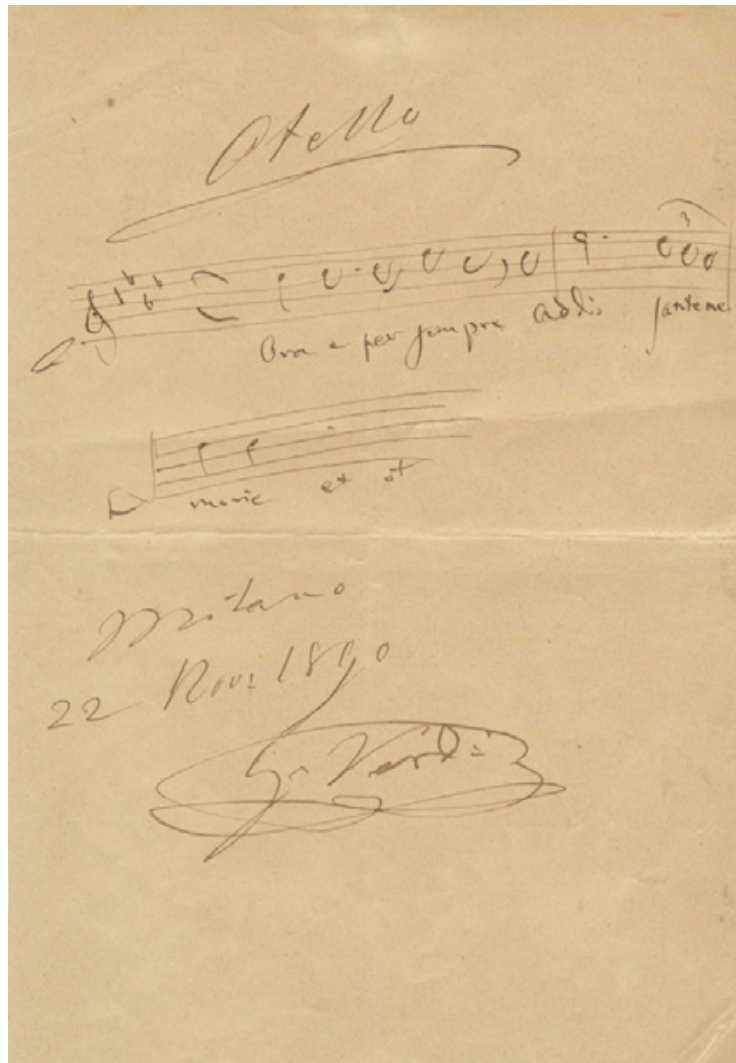 Otello
3
Ora e per sempre addio sante me
morie et et
Milano
22 Nov: 1890
G. Verdi